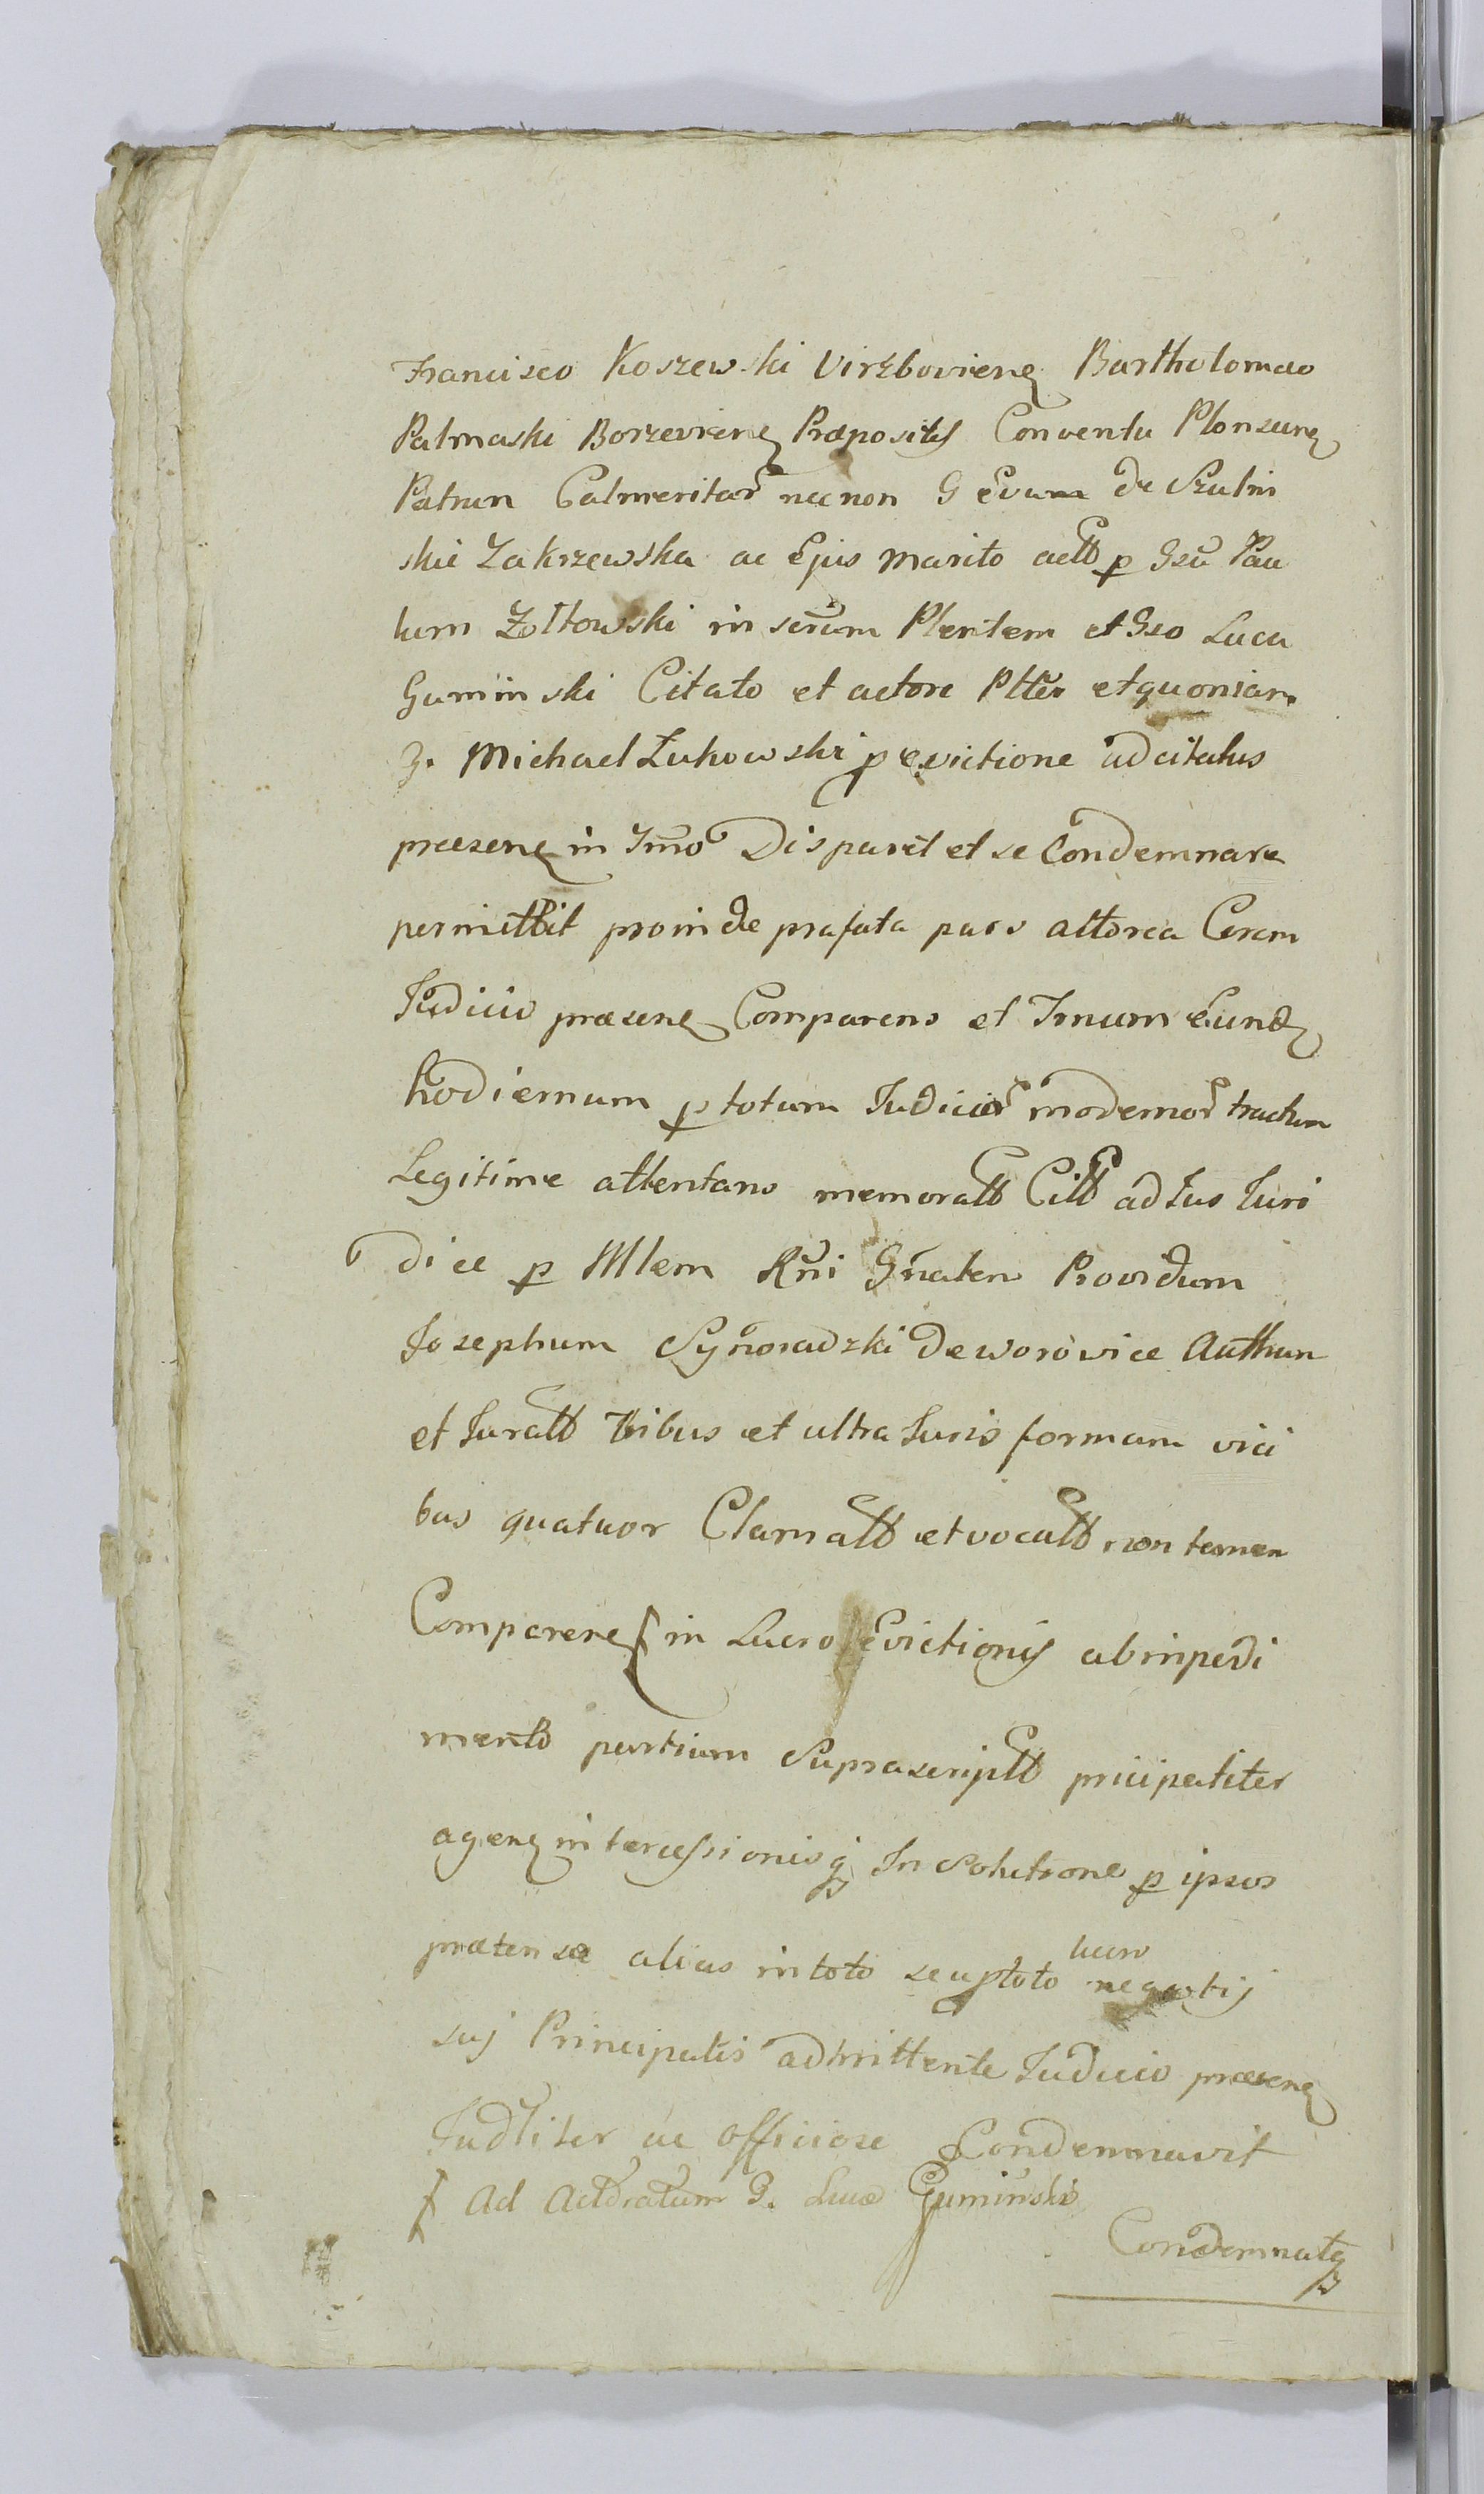 Francisco Koszewski Virzbovienẽ Bartholomæo
Palmaski Borzevienẽ Præpositis Conventu Plonscenẽ
Patrum Calmeritar̃ necnon G Evam de Szulin
skie Zakrzewska ac Ejus marito actt p Gsũ Pau
lum Zoltowski in sẽrum Plentem et Gso Luca
Guminski Citato et actore Pltẽr et quoniam
G. Michael Łukowski p evictione adcitatus
præsenẽ in Tm̃o Disparet et se Condemnare
permittit proinde præfata pars actorea Coram
Judicio præsenẽ Comparens et Tm̃um Eund
hodiernum p totum Judicior̃ modernor̃ tractum
Legitime attentans memoratt Citt ad Jus Juri
dice p Mlem Rñi Gñalem Providum
Josephum Sygnoradzki de worowice Autthum
et Juratt Tribus et ultra Juris formam vici
bus quatuor Clamatt et vocatt non tamen
Comparenẽ ƒ in Lucro Evictionis ab inpedi
mento partium Suprascriptt pricipaliter
agenẽ intercessionisq In Solutione p ipsos
prætensæ alias in toto seu ptoto lucro negotij
suj Principalis admittente Judicio præsenẽ
Judtliter ac officiose Condemnavit
ƒ Ad Actoratum G. Lucæ Guminski
Condemnatq